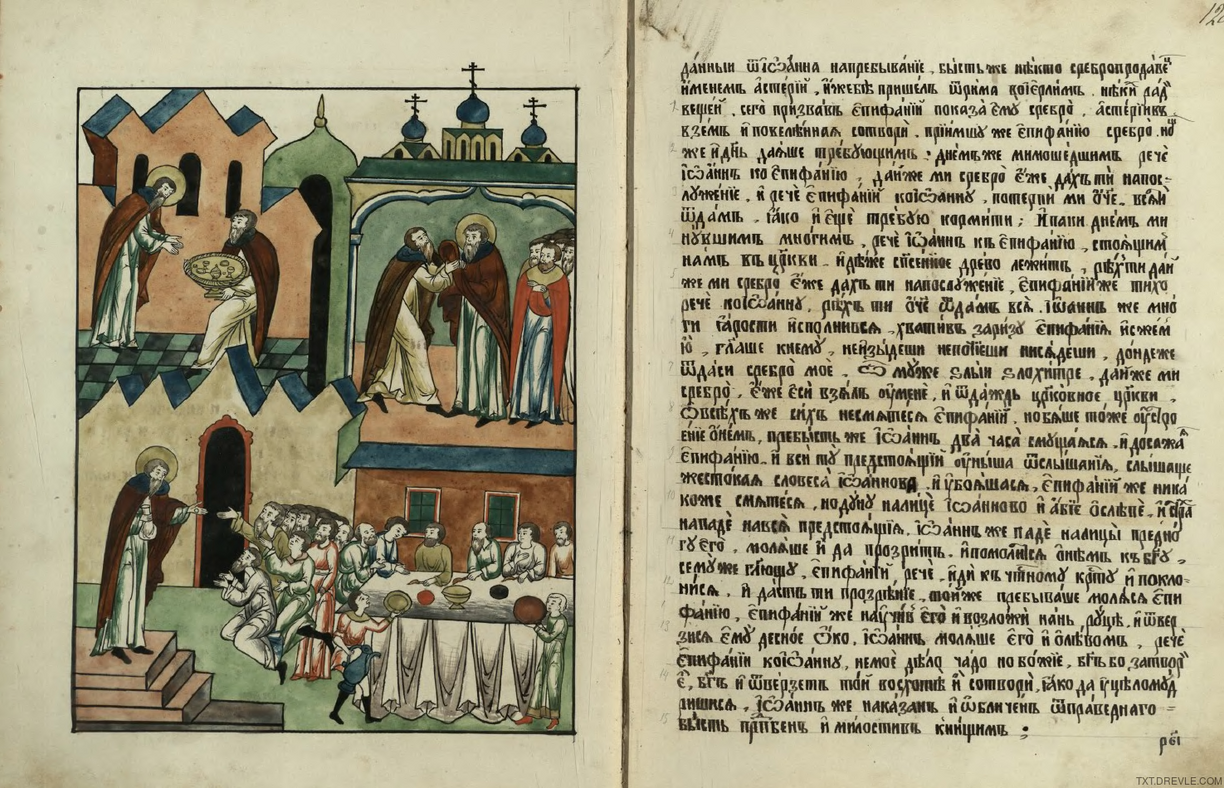 12
да́нныи ѿіѡ́анна напребыва́нїе . бы́сть же нѣ́кто сребропрода́ве
и́менемъ а҆стерїй , и҆́жебѣ прише́лъ ѿри́ма коі҆ерли́мъ . нѣ́кїѧ ра́д
веще́й . сего̀ призва́въ є҆пифа́нїй показа̀ є҆мꙋ̀ сребро̀ . а҆сте́рїйжъ
взе́мъ и҆ повелѣ́нная сотворѝ . прїи́мшꙋ же є҆пифа́нїю сребро . но́
же и҆ дн҃ь даѧ́ше тре́бꙋющимъ : дне́мъ же мимоше́дшимъ речѐ
і҆ѡа́ннъ ко є҆пифа́нїю , да́йже ми сребро̀ є҆́же да́хъ ти напос-
лꙋже́нїе . и҆ речѐ є҆пифа́нїй коі҆ѡа́ннꙋ , потерпи́ ми ѻ҆́че . всѧ̀
ѿда́мъ . ꙗ҆́ко и҆ є҆щѐ тре́бꙋю корми́ти ; И҆ па́ки дне́мъ ми
нꙋ́вшимъ мно́гимъ , речѐ і҆ѡа́ннъ къ є҆пифа́нїю , стоѧ́щим
на́мъ въ цр҃кви . и҆дѣ́же сп҃се́нное дре́во лежи́тъ , рѣ́хъ ти да́й
же ми сребро̀ є҆́же да́хъ ти напослꙋже́нїе , є҆пифа́нїй же ти́хо
речѐ коі҆ѡа́ннꙋ , рѣ́хъ ти ѻ҆́че ѿда́мъ всѧ̀ . І҆ѡа́ннъ же мно́
ги ꙗ҆́рости и҆спо́лнивсѧ , хвати́въ зари́зꙋ є҆пифа́нїѧ и҆сжем
ю҆̀ , гл҃аше кнемꙋ̀ , неи҆зы́деши непочі́еши нисѧ́деши , до́ндеже
ѿда́си сребро̀ моѐ . ѽ мꙋ́же ѕлы́и ѕлохи́тре , да́йже ми
сребро̀ . є҆́же є҆сѝ взѧ́лъ оу҆менѐ , и҆ ѿда́ждь цр҃ко́вное цр҃кви .
ѽ всѣ́хъ же си́хъ несмѧте́сѧ є҆пифа́нїй . но бѧ́ше то́же оу҆стро
е́нїе ѻ҆не́мъ , пребы́сть же і҆ѡа́ннъ два̀ часа̀ смꙋща́ѧсѧ . и҆ досажа́ѧ
є҆пифа́нїю . и҆ всѝ тꙋ̀ предстоѧ́щїи оу҆ны́ша ѿслы́шанїѧ , слы́шаще
же́стокаѧ словеса̀ і҆ѡа́ннова , и҆ оу҆боѧ́шасѧ , є҆пифа́нїй же ника́
коже смѧте́сѧ , но дꙋ́нꙋ налицѐ і҆ѡа́нново и҆ а҆́бїе ѻ҆слѣ́пе , и҆ стра́
нападѐ навсѧ̀ предстоѧ́щїѧ . і҆ѡа́ннъ же падѐ налицы̀ предно́
гꙋ є҆гѡ̀ , молѧ́ше и҆̀ да прозри́тъ . и҆ помоли́лсѧ ѻ҆не́мъ къ бг҃ꙋ .
семꙋ́ же гл҃ющꙋ , є҆пифа́нїй , речѐ , и҆дѝ къ чт҃но́мꙋ крт҃ꙋ̀ и҆ покло-
ни́сѧ , и҆ да́стъ ти прозрѣ́нїе , то́й же пребыва́ше молѧ́сѧ є҆пи
фа́нїю , є҆пифа́нїй же наꙋчи́въ є҆го̀ и҆ возложѝ на́нь рꙋ́цѣ . и҆ ѿве́р
зисѧ є҆мꙋ̀ десно́е ѻ҆́ко , і҆ѡа́ннъ молѧ́ше є҆го̀ и҆ ѻ҆лѣ́вомъ , речѐ
є҆пифа́нїи коі҆ѡа́ннꙋ , немоѐ дѣ́ло ча́до но бо́жїе , бг҃ъ бо затвор
ѐ , бг҃ъ и҆ ѿве́рзетъ то́й восхотѣ̀ и҆ сотворѝ , ꙗ҆́ко да и҆ цѣломꙋд
ришисѧ , І҆ѡа́ннъ же нака́занъ и҆ ѡ҆бличе́нъ ѿпра́веднаго =
бы́сть прпⷣбенъ и҆ ми́лостивъ кни́щимъ :
рв҃і
TXT.DREVLE.COM